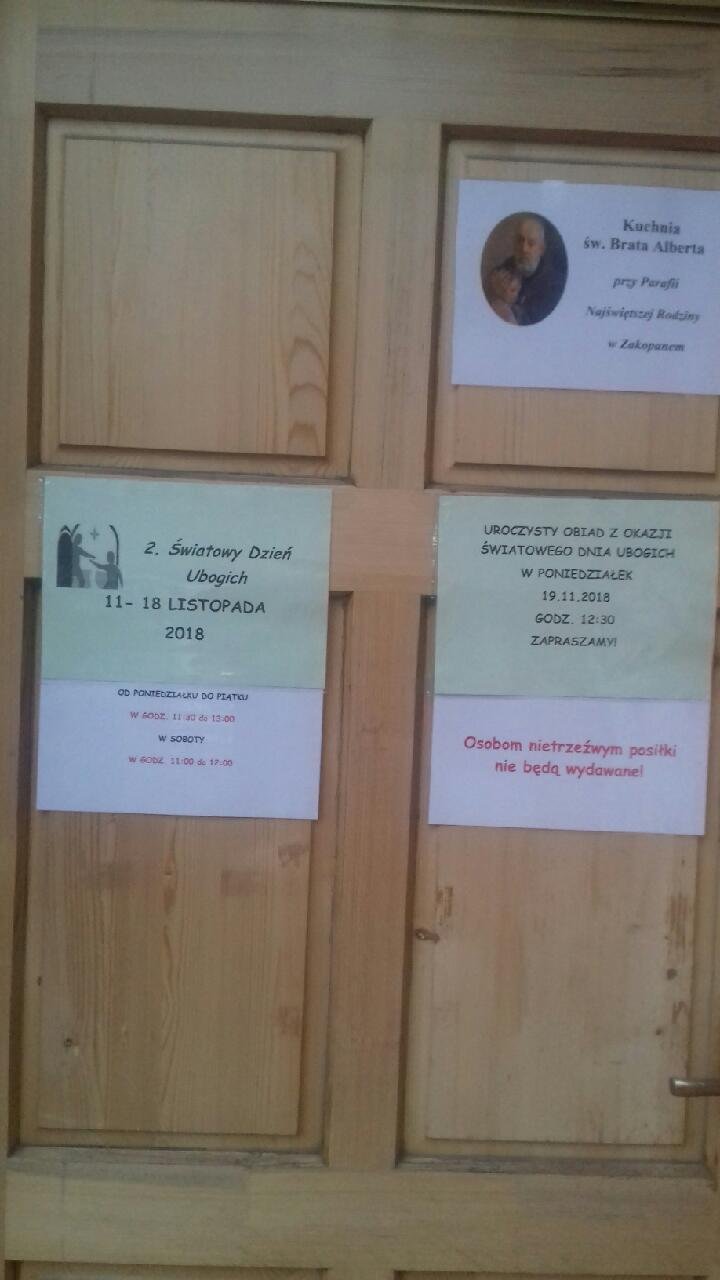 Kuchnia
św. Brata Alberta
przy Parafii
Najświętszej Rodziny
w Zakopanem
2. Światowy Dzień
Ubogich
11- 18 LISTOPADA
2018
OD PONIEDZIAŁKU DO PIĄTKU
W GODZ. 11:30 do 13:00
W SOBOTY
W GODZ. 11:00 do 12:00
UROCZYSTY OBIAD Z OKAZJI
ŚWIATOWEGO DNIA UBOGICH
W PONIEDZIAŁEK
19.11.2018
GODZ. 12:30
ZAPRASZAMY!
Osobom nietrzeźwym posiłki
nie będą wydawane!